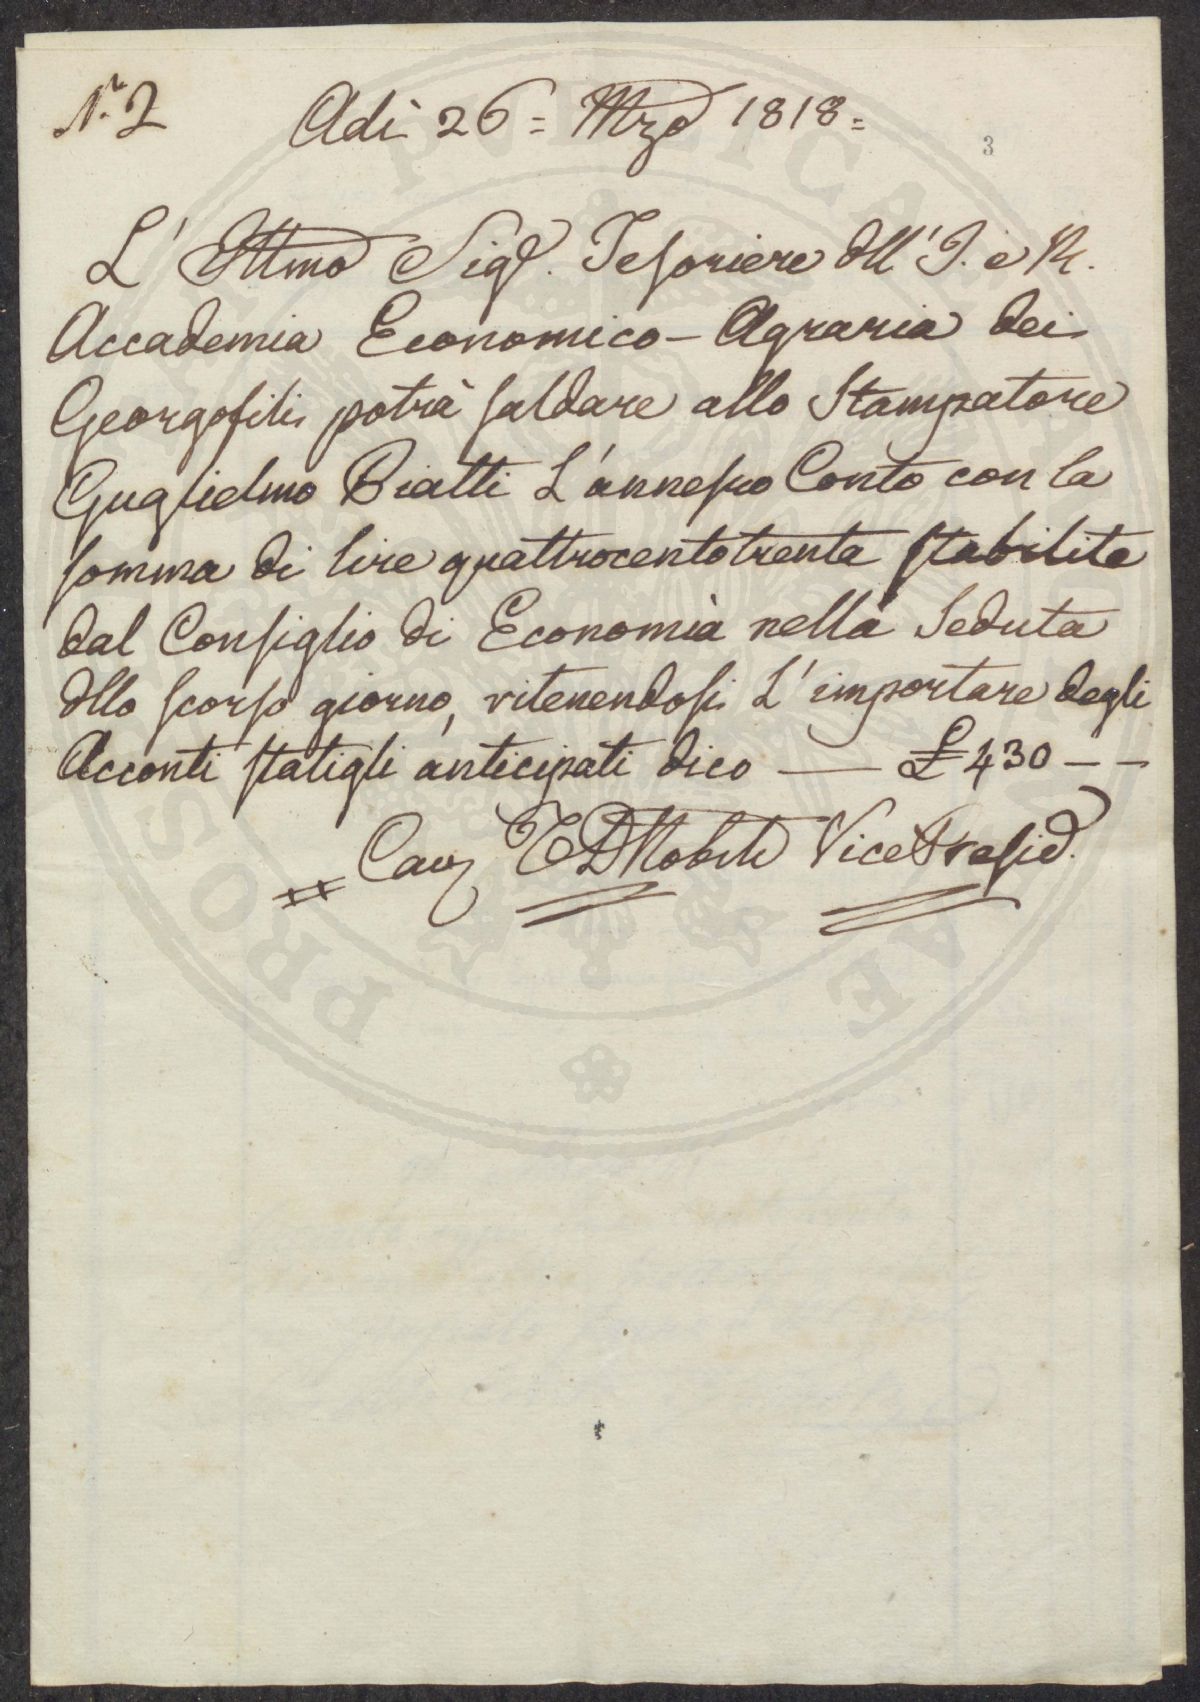 N.° 2 Adì 26 = Mzo 1818 =
3
L' Illmo Sigr. Tesoriere dll' I. e R.
Accademia Economico - Agraria dei
Georgofili potrà saldare allo Stampatore
Guglielmo Piatti L'annesso Conto con la
somma di lire quattrocentotrenta stabilita
dal Consiglio di Economià nella Seduta
dllo scorso giorno, ritenendosi L' importare degli
Acconti statigli anticipati dico — £ 430 - -
Cav Nobili Vice Presid.
PUBLICAE
PROSPERITATI